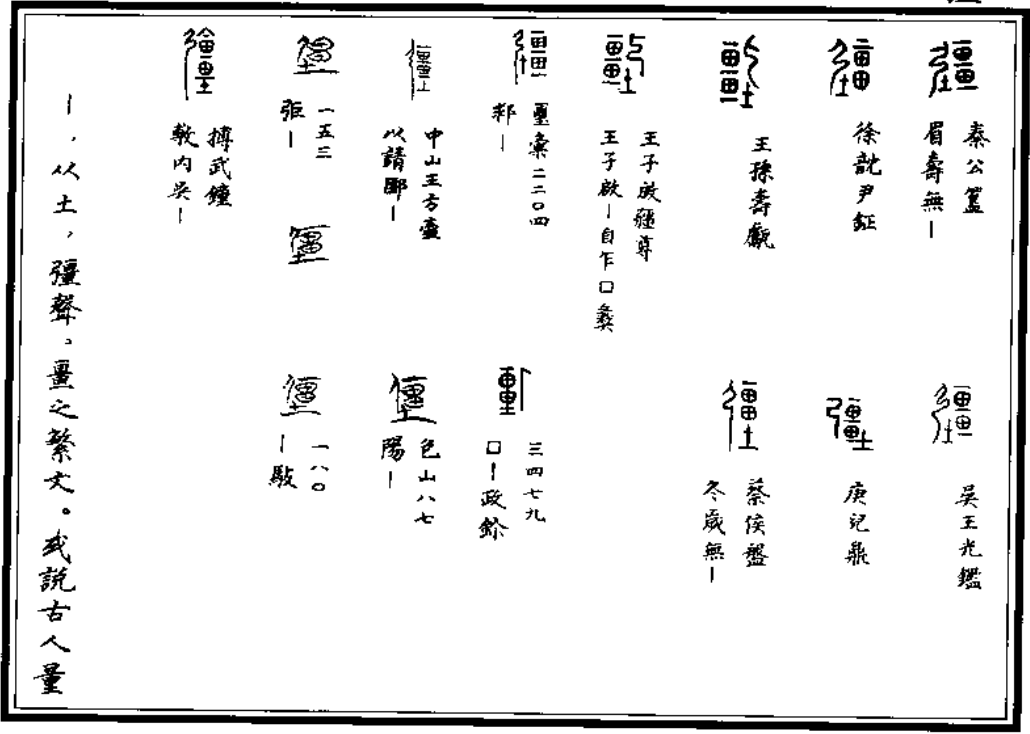 秦公簋
眉壽無－
吳王光鑑
徐𬣞尹鉦
庚兒鼎
王孫壽甗
蔡侯盤
冬歲無－
王子啟疆尊
王子啟－自乍□彝
璽彙二二〇四
邾－
三四七九
□－政鉨
中山王方壺
以請郾－
包山八七
陽－
一五三
弡－
一八〇
－敺
搏武鐘
敦內吳－
－，从土，彊聲。畺之繁文。或說古人量